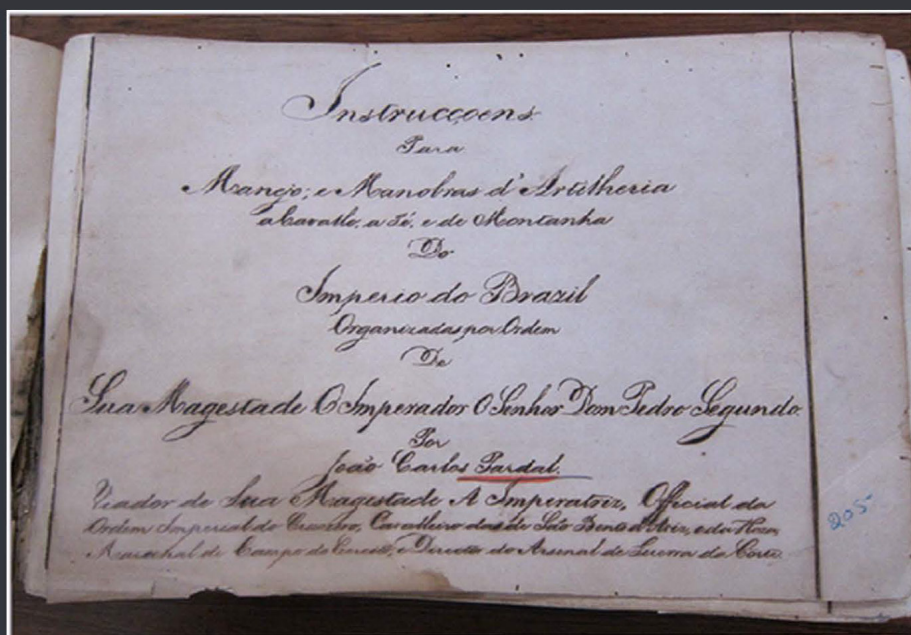 Instrucçoens
Para
Manejo, e Manobras d'Artilheria
a Cavallo, a Pé, e de Montanha
Do
Imperio do Brazil
Organizadas por Ordem
De
Sua Magestade O Imperador O Senhor Dom Pedro Segundo
Por
João Carlos Pardal.
Viador de Sua Magestade A Imperatriz, Official da
Ordem Imperial do Cruzeiro, Cavalleiro das de São Bento d'Aviz, e da Roza,
Marechal de Campo do Exercito, e Director do Arsenal de Guerra da Corte.
205